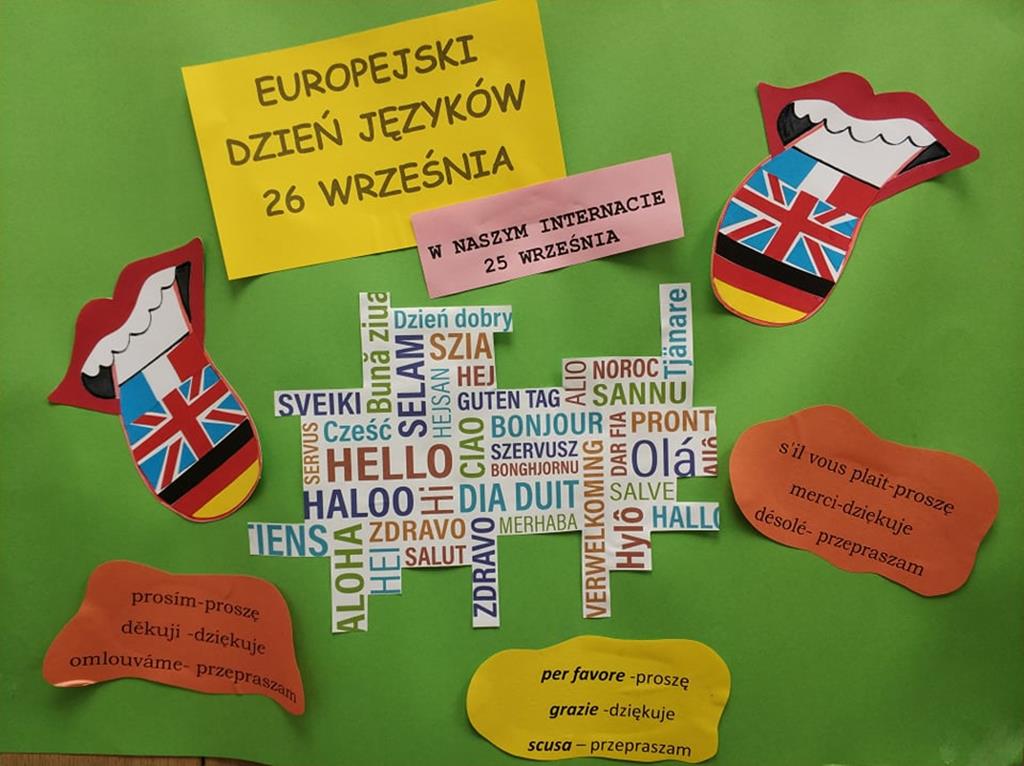 EUROPEJSKI
DZIEŃ JĘZYKÓW
26 WRZEŚNIA
W NASZYM INTERNACIE
25 WRZEŚNIA
Bună ziua
Dzień dobry
SZIA
HEJ
SELAM
HEJSAN
SVEIKI
GUTEN TAG
ALIO
NOROC
SANNU
Tjänare
SERVUS
Cześć
CIAO
BONJOUR
SZERVUSZ
BONGHJORNU
DAR FIA
PRONT
Olá
Allô
HELLO
HALOO
Hi
DIA DUIT
VERWELKOMING
SALVE
HALLO
TIENS
ALOHA
ZDRAVO
HEI
SALUT
ZDRAVO
MERHABA
Hylô
s'il vous plait-proszę
merci-dziękuje
désolé- przepraszam
prosím-proszę
děkuji -dziękuje
omlouváme- przepraszam
per favore -proszę
grazie -dziękuje
scusa – przepraszam